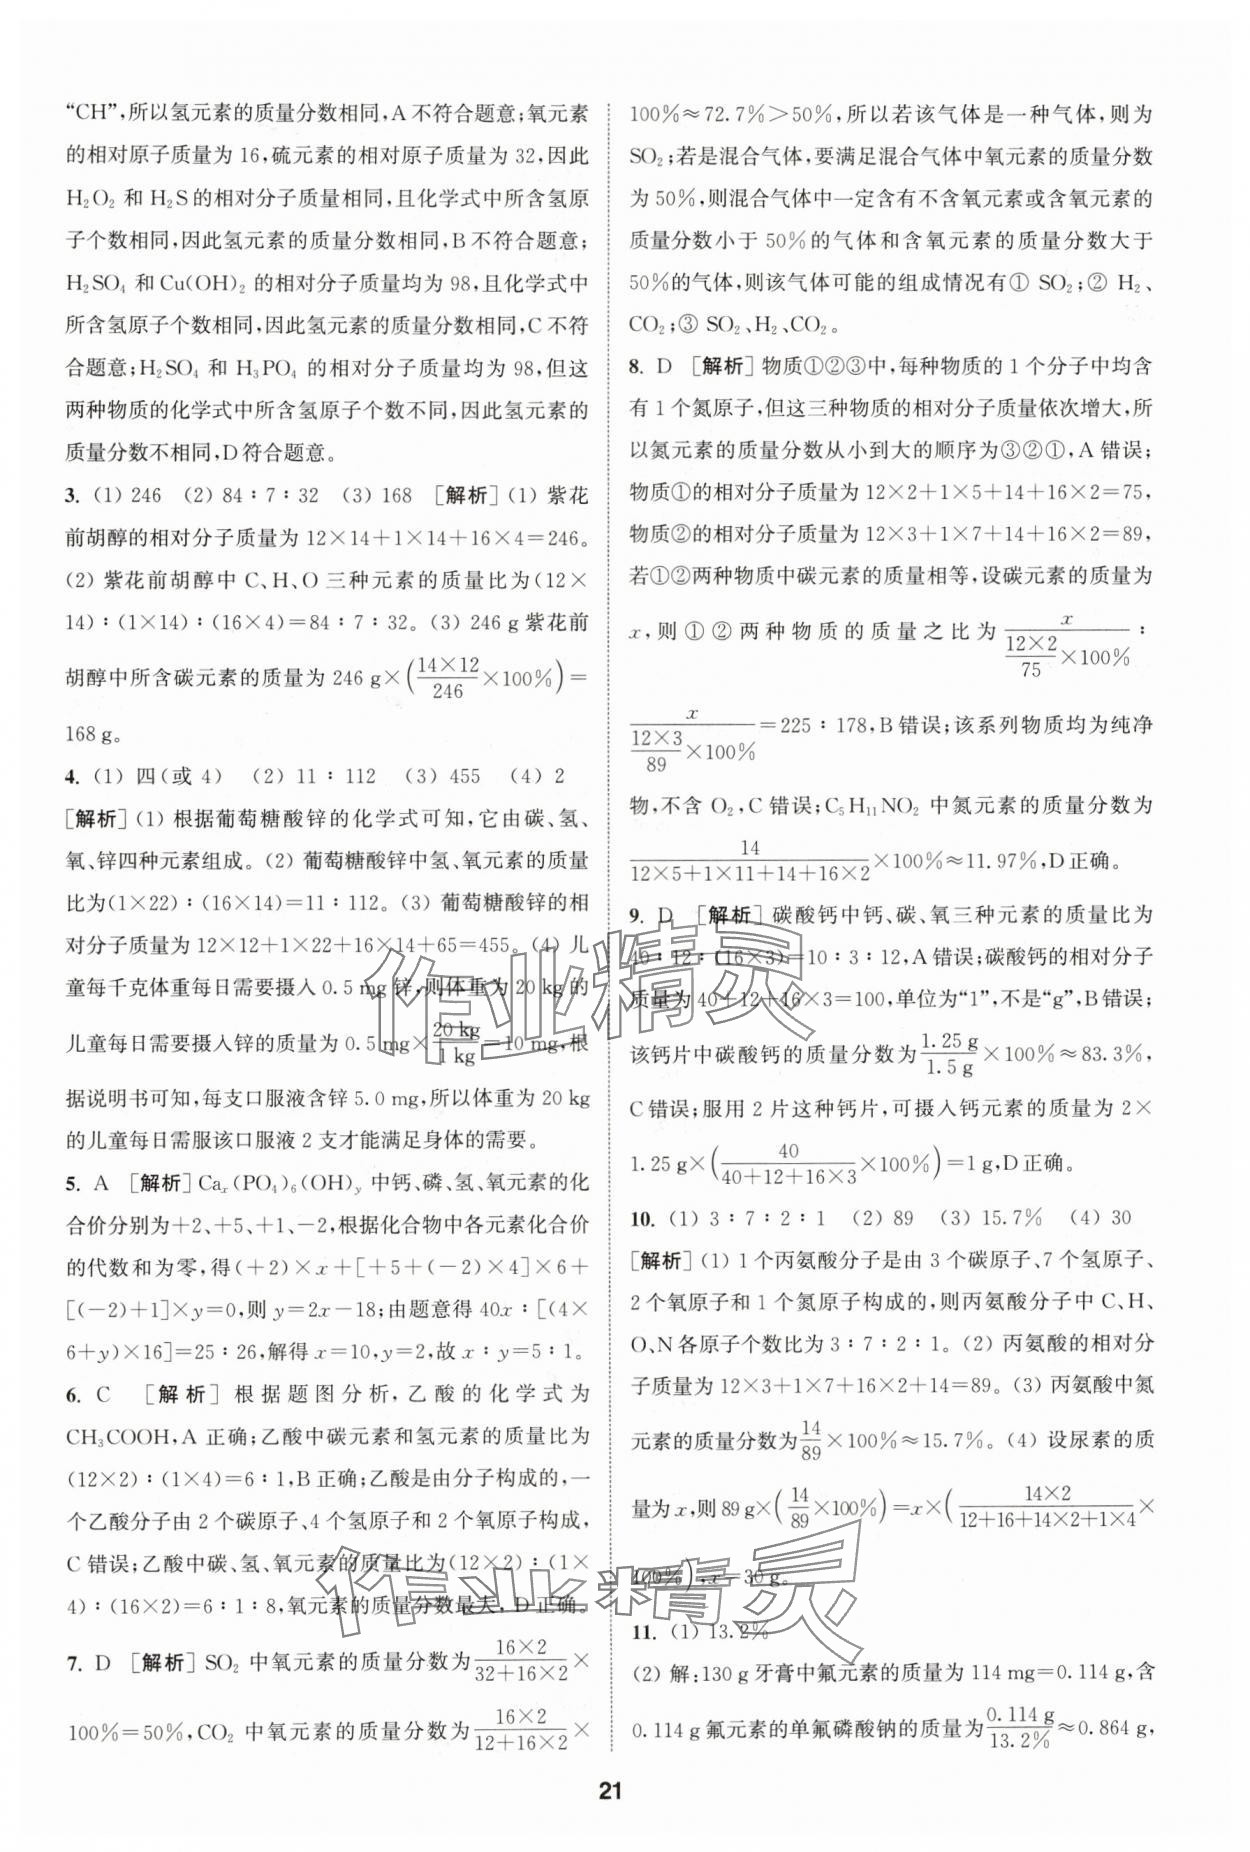 “CH”,所以氢元素的质量分数相同,A 不符合题意;氧元素
的相对原子质量为 16,硫元素的相对原子质量为 32,因此
H₂O₂ 和 H₂S的相对分子质量相同,且化学式中所含氢原
子个数相同,因此氢元素的质量分数相同,B 不符合题意;
H₂SO₄ 和 Cu(OH)₂ 的相对分子质量均为 98,且化学式中
所含氢原子个数相同,因此氢元素的质量分数相同,C 不符
合题意;H₂SO₄ 和 H₃PO₄ 的相对分子质量均为 98,但这
两种物质的化学式中所含氢原子个数不同,因此氢元素的
质量分数不相同,D 符合题意。
3. (1) 246 (2) 84∶7∶32 (3) 168 [解析](1) 紫花
前胡醇的相对分子质量为 12×14+1×14+16×4=246。
(2) 紫花前胡醇中 C、H、O 三种元素的质量比为(12×
14)∶(1×14)∶(16×4)=84∶7∶32。(3) 246 g 紫花前
胡醇中所含碳元素的质量为 246 g×(14×12/246×100%)=
168 g。
4. (1) 四(或 4) (2) 11∶112 (3) 455 (4) 2
[解析](1) 根据葡萄糖酸锌的化学式可知,它由碳、氢、
氧、锌四种元素组成。(2) 葡萄糖酸锌中氢、氧元素的质量
比为(1×22)∶(16×14)=11∶112。(3) 葡萄糖酸锌的相
对分子质量为 12×12+1×22+16×14+65=455。(4) 儿
童每千克体重每日需要摄入 0.5 mg 锌,则体重为 20 kg 的
儿童每日需要摄入锌的质量为 0.5 mg×20 kg/1 kg=10 mg,根
据说明书可知,每支口服液含锌 5.0 mg,所以体重为 20 kg
的儿童每日需服该口服液 2 支才能满足身体的需要。
5. A [解析]Caₓ(PO₄)₆(OH)ᵧ 中钙、磷、氢、氧元素的化
合价分别为+2、+5、+1、-2,根据化合物中各元素化合价
的代数和为零,得(+2)×x+[+5+(-2)×4]×6+
[(-2)+1]×y=0,则 y=2x-18;由题意得 40x∶[(4×
6+y)×16]=25∶26,解得 x=10,y=2,故 x∶y=5∶1。
6. C [解析]根据题图分析,乙酸的化学式为
CH₃COOH,A 正确;乙酸中碳元素和氢元素的质量比为
(12×2)∶(1×4)=6∶1,B 正确;乙酸是由分子构成的,一
个乙酸分子由 2 个碳原子、4 个氢原子和 2 个氧原子构成,
C 错误;乙酸中碳、氢、氧元素的质量比为(12×2)∶(1×
4)∶(16×2)=6∶1∶8,氧元素的质量分数最大,D 正确。
7. D [解析]SO₂ 中氧元素的质量分数为16×2/32+16×2×
100%=50%,CO₂ 中氧元素的质量分数为16×2/12+16×2×
100%≈72.7%>50%,所以若该气体是一种气体,则为
SO₂;若是混合气体,要满足混合气体中氧元素的质量分数
为 50%,则混合气体中一定含有不含氧元素或含氧元素的
质量分数小于 50%的气体和含氧元素的质量分数大于
50%的气体,则该气体可能的组成情况有① SO₂;② H₂、
CO₂;③ SO₂、H₂、CO₂。
8. D [解析]物质①②③中,每种物质的 1 个分子中均含
有 1 个氮原子,但这三种物质的相对分子质量依次增大,所
以氮元素的质量分数从小到大的顺序为③②①,A 错误;
物质①的相对分子质量为 12×2+1×5+14+16×2=75,
物质②的相对分子质量为 12×3+1×7+14+16×2=89,
若①②两种物质中碳元素的质量相等,设碳元素的质量为
x,则①②两种物质的质量之比为 x/(12×2/75×100%)∶
x/(12×3/89×100%)=225∶178,B 错误;该系列物质均为纯净
物,不含 O₂,C 错误;C₅H₁₁NO₂ 中氮元素的质量分数为
14/12×5+1×11+14+16×2×100%≈11.97%,D 正确。
9. D [解析]碳酸钙中钙、碳、氧三种元素的质量比为
40∶12∶(16×3)=10∶3∶12,A 错误;碳酸钙的相对分子
质量为 40+12+16×3=100,单位为“1”,不是“g”,B 错误;
该钙片中碳酸钙的质量分数为1.25 g/1.5 g×100%≈83.3%,
C 错误;服用 2 片这种钙片,可摄入钙元素的质量为 2×
1.25 g×(40/40+12+16×3×100%)=1 g,D 正确。
10. (1) 3∶7∶2∶1 (2) 89 (3) 15.7% (4) 30
[解析](1) 1 个丙氨酸分子是由 3 个碳原子、7 个氢原子、
2 个氧原子和 1 个氮原子构成的,则丙氨酸分子中 C、H、
O、N 各原子个数比为 3∶7∶2∶1。(2) 丙氨酸的相对分
子质量为 12×3+1×7+16×2+14=89。(3) 丙氨酸中氮
元素的质量分数为14/89×100%≈15.7%。(4) 设尿素的质
量为 x,则 89 g×(14/89×100%)=x×(14×2/12+16+14×2+1×4×
100%),x=30 g。
11. (1) 13.2%
(2) 解:130 g 牙膏中氟元素的质量为 114 mg=0.114 g,含
0.114 g 氟元素的单氟磷酸钠的质量为0.114 g/13.2%≈0.864 g,
21
作业精灵
作业精灵